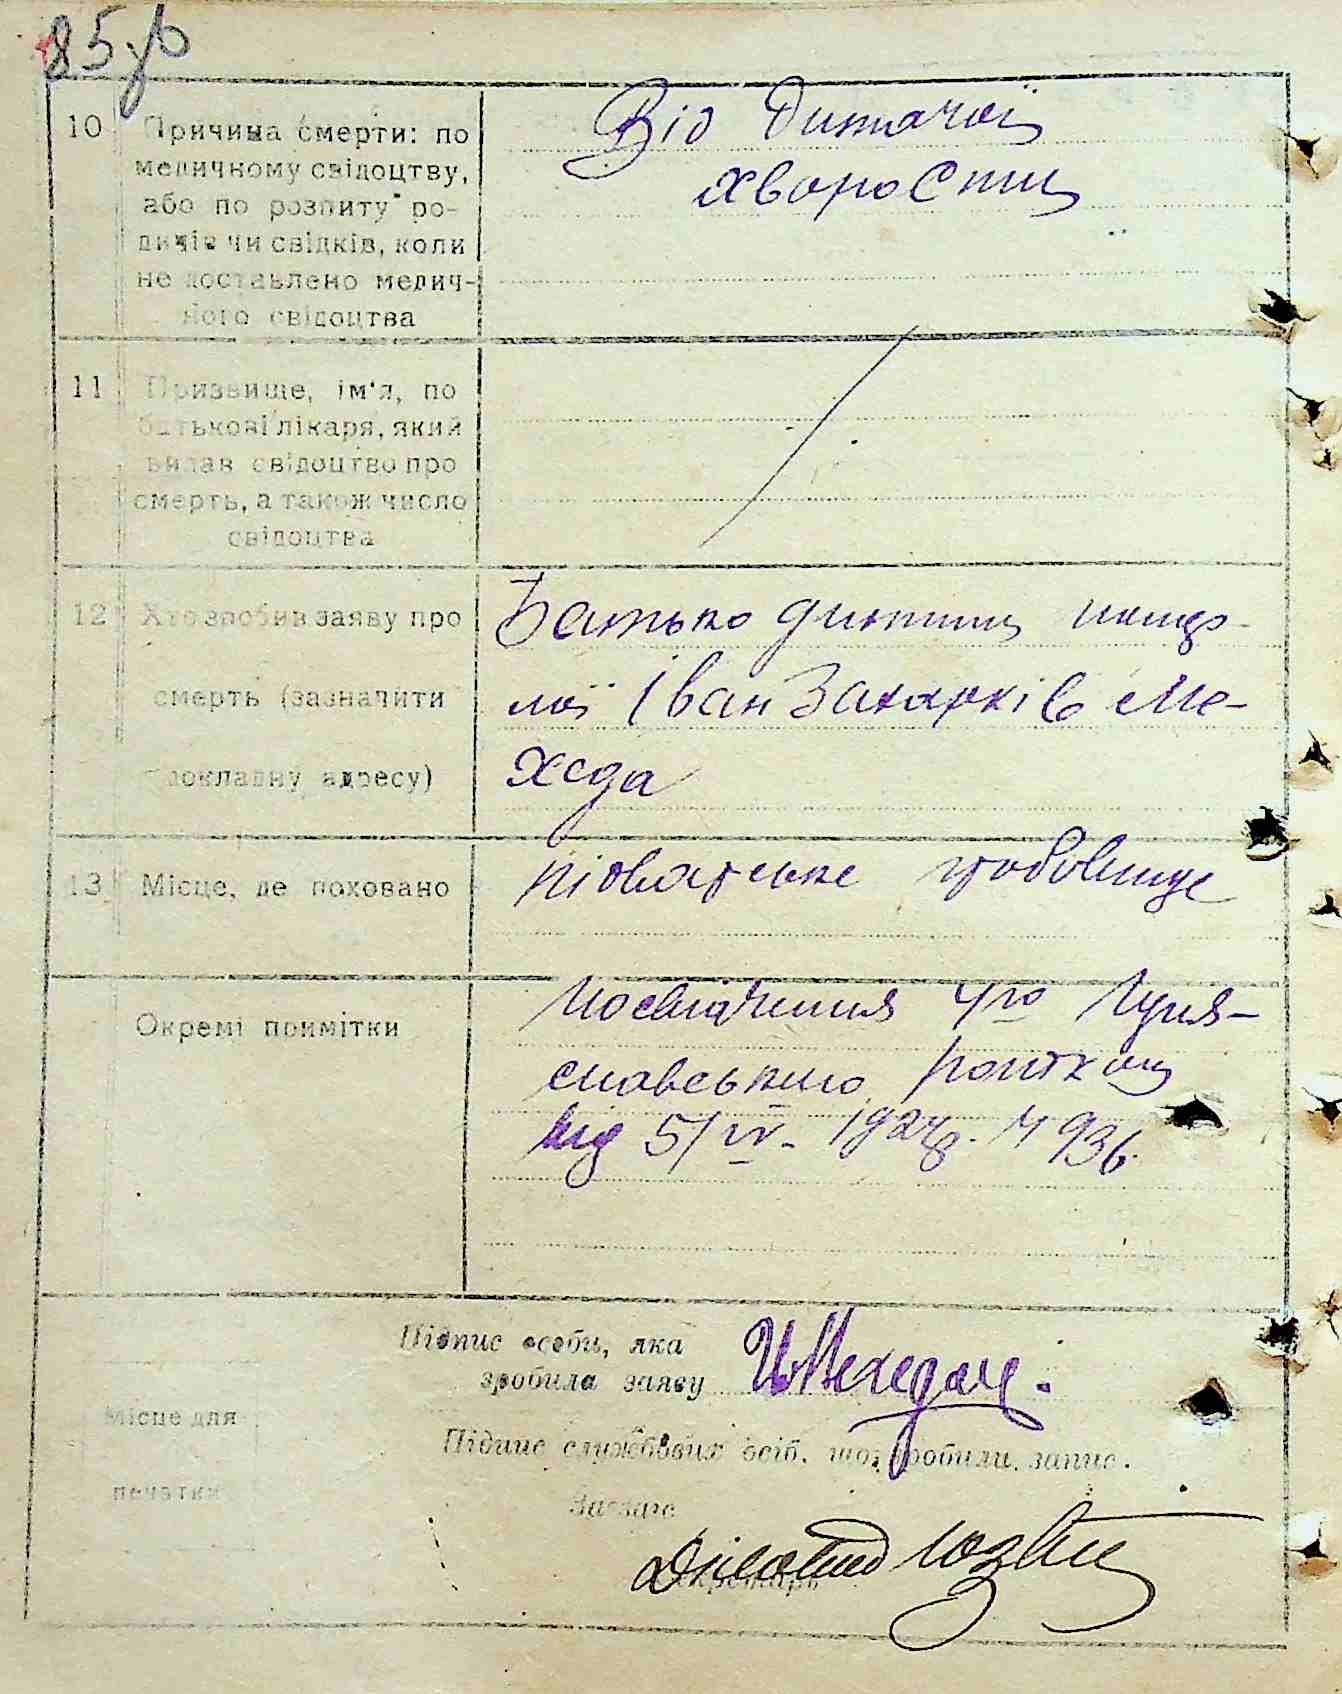 85
10 Причина смерти: по
медичному свідоцтву,
або по розпиту ро-
дичів чи свідків, коли
не доставлено медич-
ного свідоцтва
Від дитячої
хворости
11 Призвище, ім'я, по
батькові лікаря, який
видав свідоцтво про
смерть, а також число
свідоцтва
12 Хто зробив заяву про
смерть (зазначити
докладну адресу)
Батько дитини
Іван Захарків Ме-
хеда
13 Місце, де поховано
підварське гробовище
Окремі примітки
Посвідчення
славського
від 5/IV- 1924р. Ч 936
Підпис особи, яка
зробила заяву
Підпис службових осіб, що зробили запис.
Місце для
печатки
Завзагс
Секретарь